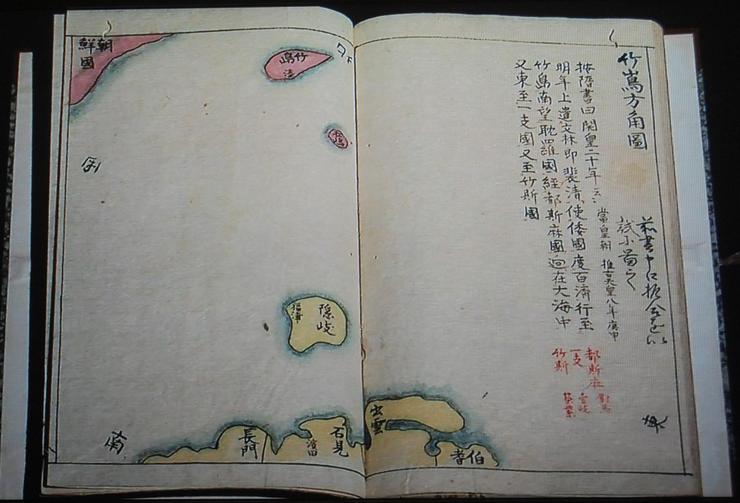 竹嶌方角圖
按隋書曰開皇二十年云云
明年上遣文林郎裴清使倭國度百濟行至
竹島南望耽羅國經都斯麻國迥在大海中
又東至一支國又至竹斯國
當皇朝
推古天皇八年庚申
都斯麻 對馬
一支 壹岐
竹斯 筑紫
朝鮮國
竹嶋
隠岐
福浦
長門
濱田
石見
出雲
伯耆